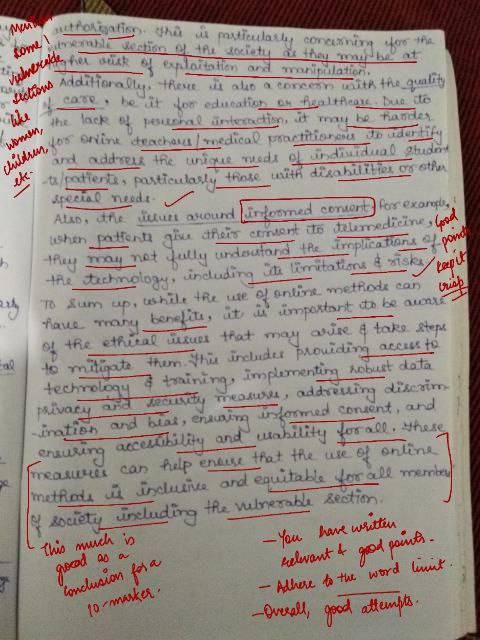 Mention
some
vulnerable
sections
like
women,
children,
etc.
authorization. This is particularly concerning for the
vulnerable section of the society as they may be at
higher risk of exploitation and manipulation.
Additionally, there is also a concern with the quality
of care, be it for education or healthcare. Due to
the lack of personal interaction, it may be harder
for online teachers/medical practitioners to identify
and address the unique needs of individual student
-ts/patients, particularly those with disabilities or other
special needs.
Also, the issues around informed consent. For example,
when patients give their consent to telemedicine,
they may not fully understand the implications of
the technology, including its limitations & risks.
Good
points
keep it
crisp
To sum up, while the use of online methods can
have many benefits, it is important to be aware
of the ethical issues that may arise & take steps
to mitigate them. This includes providing access to
technology & training, implementing robust data
privacy and security measures, addressing discrim-
ination and bias, ensuring informed consent, and
ensuring accessibility and usability for all. These
measures can help ensure that the use of online
methods is inclusive and equitable for all member
of society including the vulnerable section.
This much is
good as a
conclusion for a
10-marker.
- You have written
relevant & good points.
- Adhere to the word limit.
- Overall, good attempts.